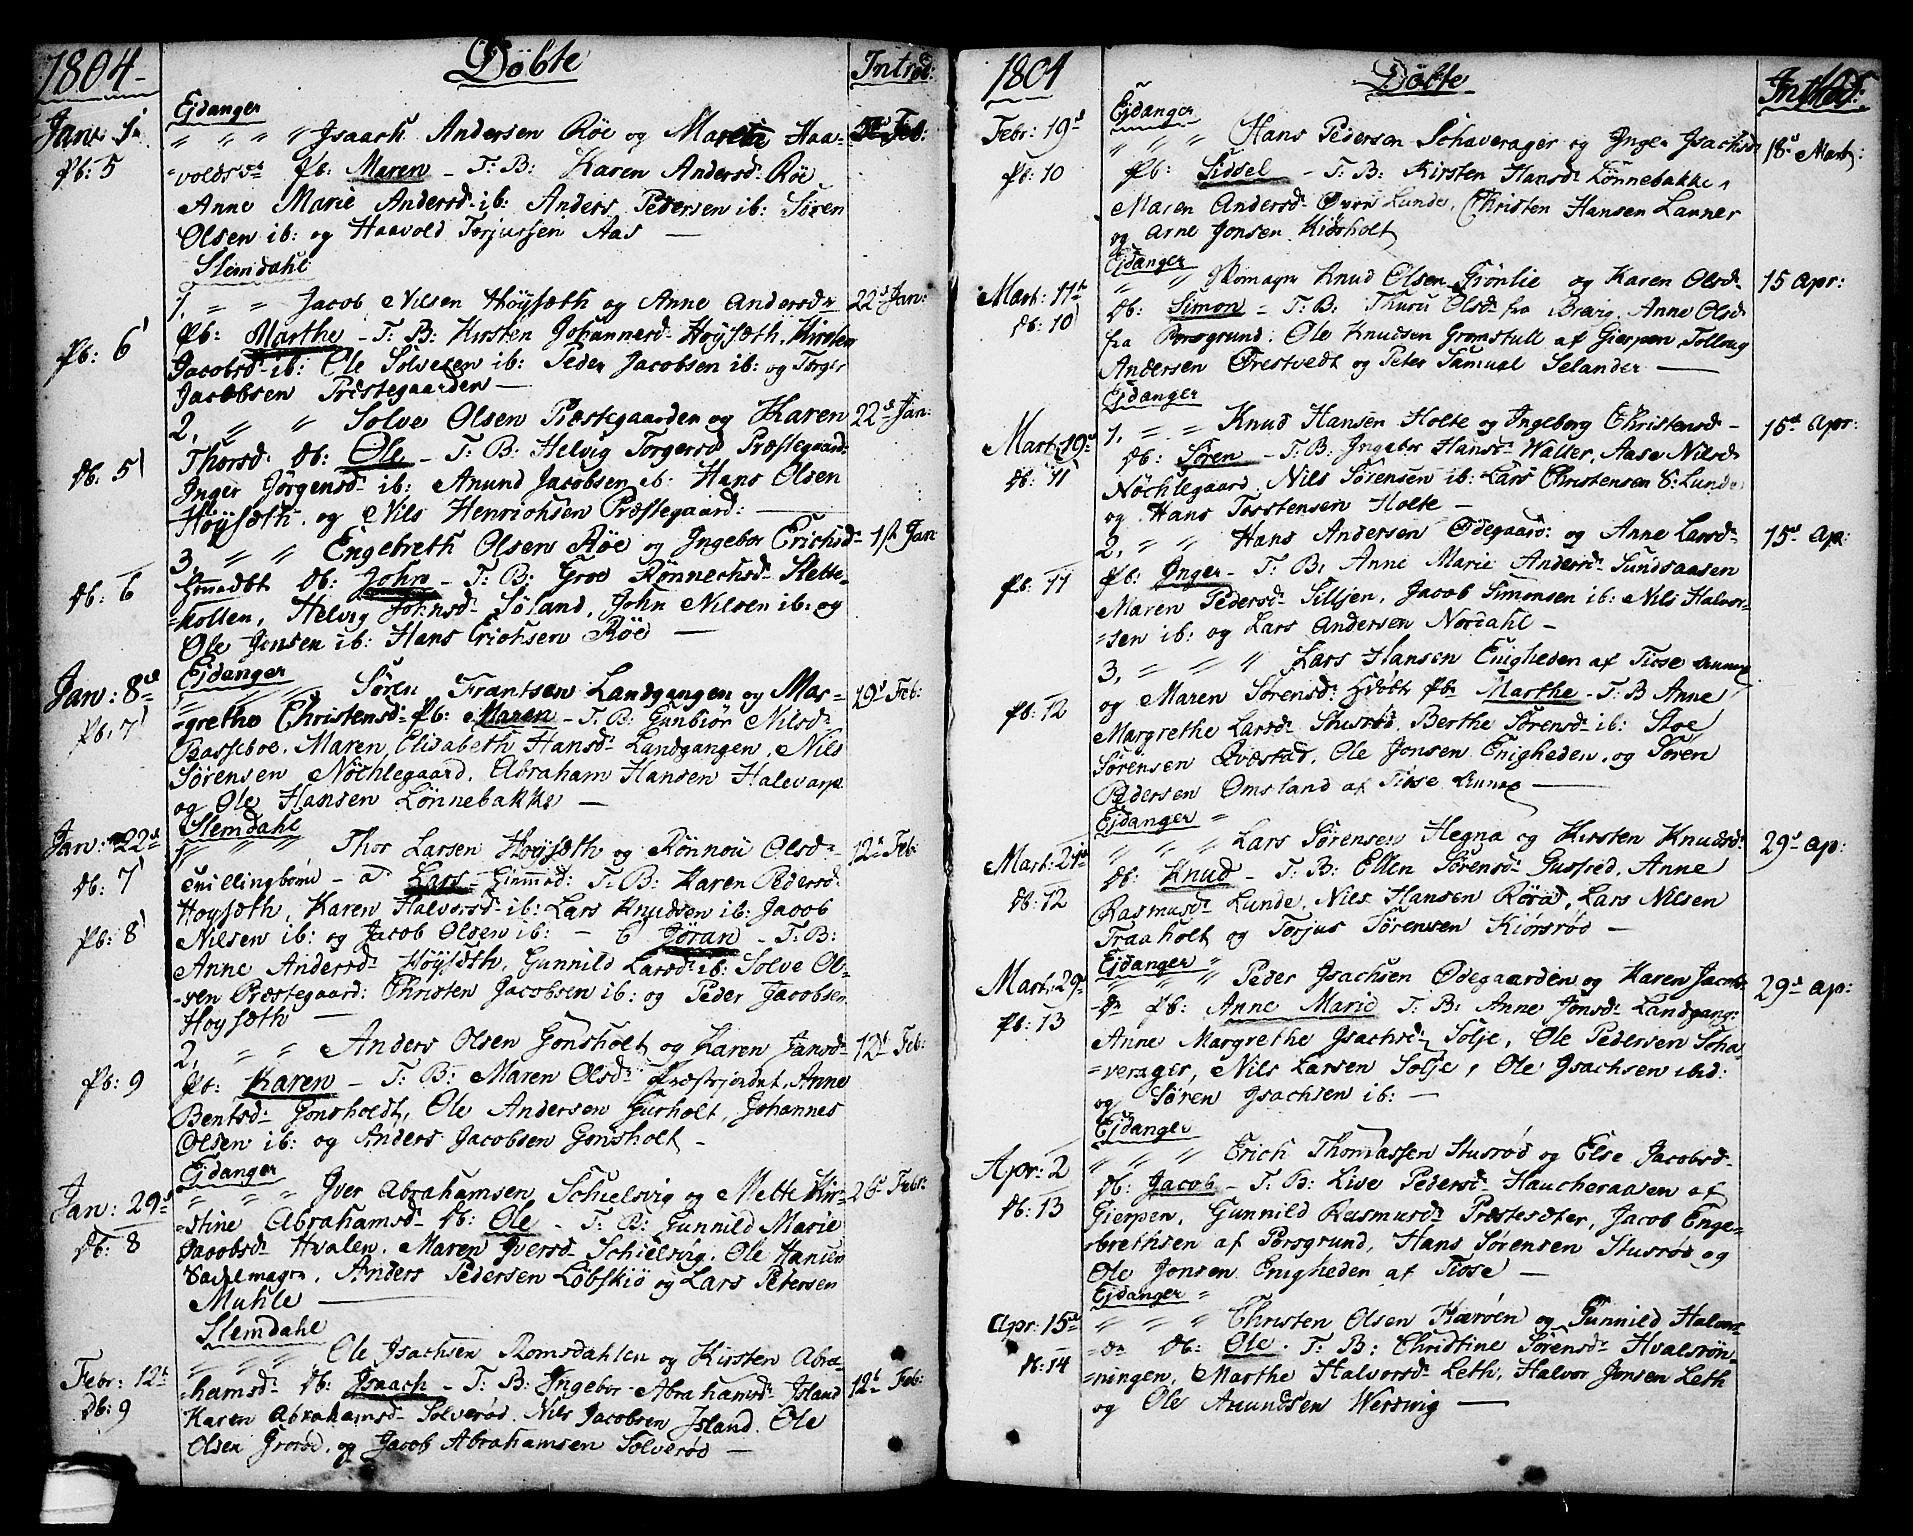 1804. Döbte Introd:
Ejdanger
Janr: 1n " " " Isaach Andersen Röe og Marthe Haa- 5te Feb:
Pb: 5 =voldsdr Pb: Maren – T. B: Karen Andersdr Röe
Anne Marie Andersdr ib: Anders Pedersen ib: Sören
Olsen ib: og Haavold Torjussen Aas —
Slemdahl
1, " " Jacob Nilsen Höysæth og Anne Andersdr 22d Jan:
Pb: 6 Pb: Marthe – T. B: Kirsten Johannesdr Höysæth, Kirsten
Jacobsdr ib: Ole Solvesen ib: Peder Jacobsen ib: og Torger
Jacobsen Præstegaarden —
2, " " Solve Olsen Præstegaarden og Karen 22d Jan:
Db: 5 Thorsdr Db: Ole – T. B: Helvig Torgersdr Præstegaard:
Inger Jörgensdr ib: Anund Jacobsen ib: Hans Olsen
Höysæth og Nils Henrichsen Præstegaard: —
3, " " Engebreth Olsen Röe og Ingebor Erichsdr 1st Jan
Db: 6 Db: John – T. B: Groe Rönnechsdr Slette-
=kollen, Helvig Johnsdr Söland, John Nilsen ib: og
Ole Jonsen ib: Hans Erichsen Röe —
Ejdanger
Jan: 8de " " " Sören Frantsen Landgangen og Mar- 19d Feb:
Pb: 7 =grethe Christensdr Pb: Maren – T. B: Gunbiör Nilsdr
Basseboe, Maren Elisabeth Hansdr Landgangen, Nils
Sörensen Nöchlegaard, Abraham Hansen Halevarp
og Ole Hansen Lönnebakke —
Slemdahl
Jan: 22d " " " Thor Larsen Höysæth og Rönnou Olsdr 12t Feb:
Db: 7 – a Lars – T. B: Karen Pedersdr
Höysæth, Karen Halvorsdr ib: Lars Knudsen ib: Jacob
Pb: 8 Nilsen ib: og Jacob Olsen ib: – b Jöran – T. B:
Anne Andersdr Höysæth, Gunnild Larsdr ib: Solve Ol-
=sen Præstegaard: Christen Jacobsen ib: og Peder Jacobsen
Höysæth —
2, " " Anders Olsen Gonsholt og Karen Jansdr 12t Feb:
Pb: 9 Pb: Karen – T. B: Maren Olsdr Præstejordet, Anne
Bentsdr Gonsholdt, Ole Andersen Gurholt, Johannes
Olsen ib: og Anders Jacobsen Gonsholt –
Ejdanger
Jan: 29d " " " Iver Abrahamsen Schielsvig og Mette Kir- 26d Febr:
=stine Abrahamsdr Db: Ole – T. B: Gunnild Marie
Db: 8 Jacobsdr Hvalen, Maren Iversdr Schielsvig, Ole Hansen
Sadelmagr, Anders Pedersen Löbskiö og Lars Petersen
Muhle —
Slemdahl
" " " Ole Isachsen Romsdahlen og Kirsten Abra-
Febr: 12t =hamsdr Db: Isaach – T. B: Ingebor Abrahamsdr Island 12t Feb:
Db: 9 Karen Abrahamsdr Solverød, Nils Jacobsen Island, Ole
Olsen Grorød, og Jacob Abrahamsen Solverød —
1804 Döbte Introd:
Ejdanger
Febr: 19d " " " Hans Pedersen Schaverager og Inger Isachsdr 18d Mart:
Pb: 10 Pb: Sidsel – T. B: Kirsten Hansdr Lönnebakke,
Maren Andersdr Övre Lunde, Christen Hansen Lanner
og Arne Jonsen Kiörholt
Ejdanger
Mart: 11t " " Skomagr Knud Olsen Grönlie og Karen Olsdr 15 Apr:
Db: 10 Db: Simon – T. B: Thuru Olsdr fra Brevig, Anne Olsdr
fra Porsgrund, Ole Knudsen Gromstull af Gierpen, Tolloug
Andersen Örestvedt og Peter Samual Selander —
Ejdanger
Mart: 19d 1, " " Knud Hansen Holte og Ingeborg Christensdr 15d Apr:
Db: 11 Db: Sören – T. B: Ingebor Hansdr Walter, Aase Nilsdr
Nöchlegaard, Nils Sörensen ib: Lars Christensen S: Lunde
og Hans Torstensen Holte –
2, " " Hans Andersen Ödegaard: og Anne Larsdr 15d Ap:
Pb: 11 Pb: Inger – T. B: Anne Marie Andersdr Sundsaasen
Maren Pedersdr Silljen, Jacob Simonsen ib: Nils Halvor-
=sen ib: og Lars Andersen Nordahl –
3, " " " Lars Hansen Enigheden af Tiose Annex
Pb: 12 og Maren Sörensdr Hjdöbt Pb: Marthe – T. B Anne
Margrethe Larsdr Stusrød, Berthe Sörensdr ib: Stoe
Sörensen Qvæstad, Ole Jonsen Enigheden, og Sören
Pedersen Omsland af Tiose Annex —
Ejdanger
Mart: 24de " " " Lars Sörensen Hegna og Kirsten Knudsdr 29d Ap:
Db: 12 Db: Knud – T. B: Ellen Sörensdr Gusfred, Anne
Rasmusdr Lunde, Nils Hansen Rörà, Lars Nilsen
Traaholt og Torjus Sörensen Kiörsrød –
Ejdanger
Mart: 29d " " Peder Isachsen Ödegaarden og Karen Jacobs- 29d Ap:
Pb: 13 =dr Pb: Anne Marie T. B: Anne Jonsdr Landgang:
Anne Margrethe Isachsdr Solje, Ole Pedersen Scha-
=verager, Nils Larsen Solje, Ole Isachsen ibid:
og Sören Isachsen ib: –
Ejdanger
Apr: 2 " " " Erich Thomassen Stusrød og Else Jacobsdr
Db: 13 Db: Jacob – T. B: Live Pedersdr Haucheraasen af
Gierpen, Gunnild Rasmusdr Præstesæter, Jacob Enge-
=brethsen af Porsgrund, Hans Sörensen Stusrød og
Ole Jonsen Enigheden af Tiose —
Ejdanger
Apr: 15de " " " Christen Olsen Hærøen og Gunnild Halvors-
Db: 14 =dr Db: Ole. T. B: Christine Sörensdr Hvalsrön-
=ningen, Marthe Halvorsdr Leth, Halvor Jonsen Leth
og Ole Amundsen Wersvig —